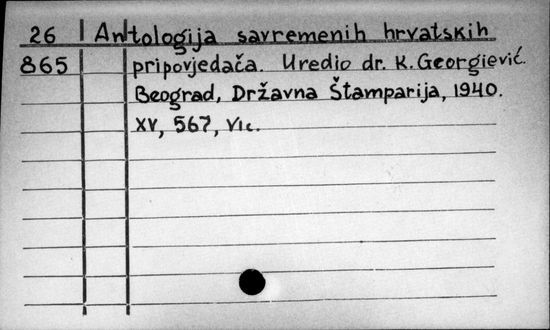 26 Antologija savremenih hrvatskih
865 pripovjedača. Uredio dr. K. Georgiević.
Beograd, Državna Štamparija, 1940.
XV, 567, Vic.